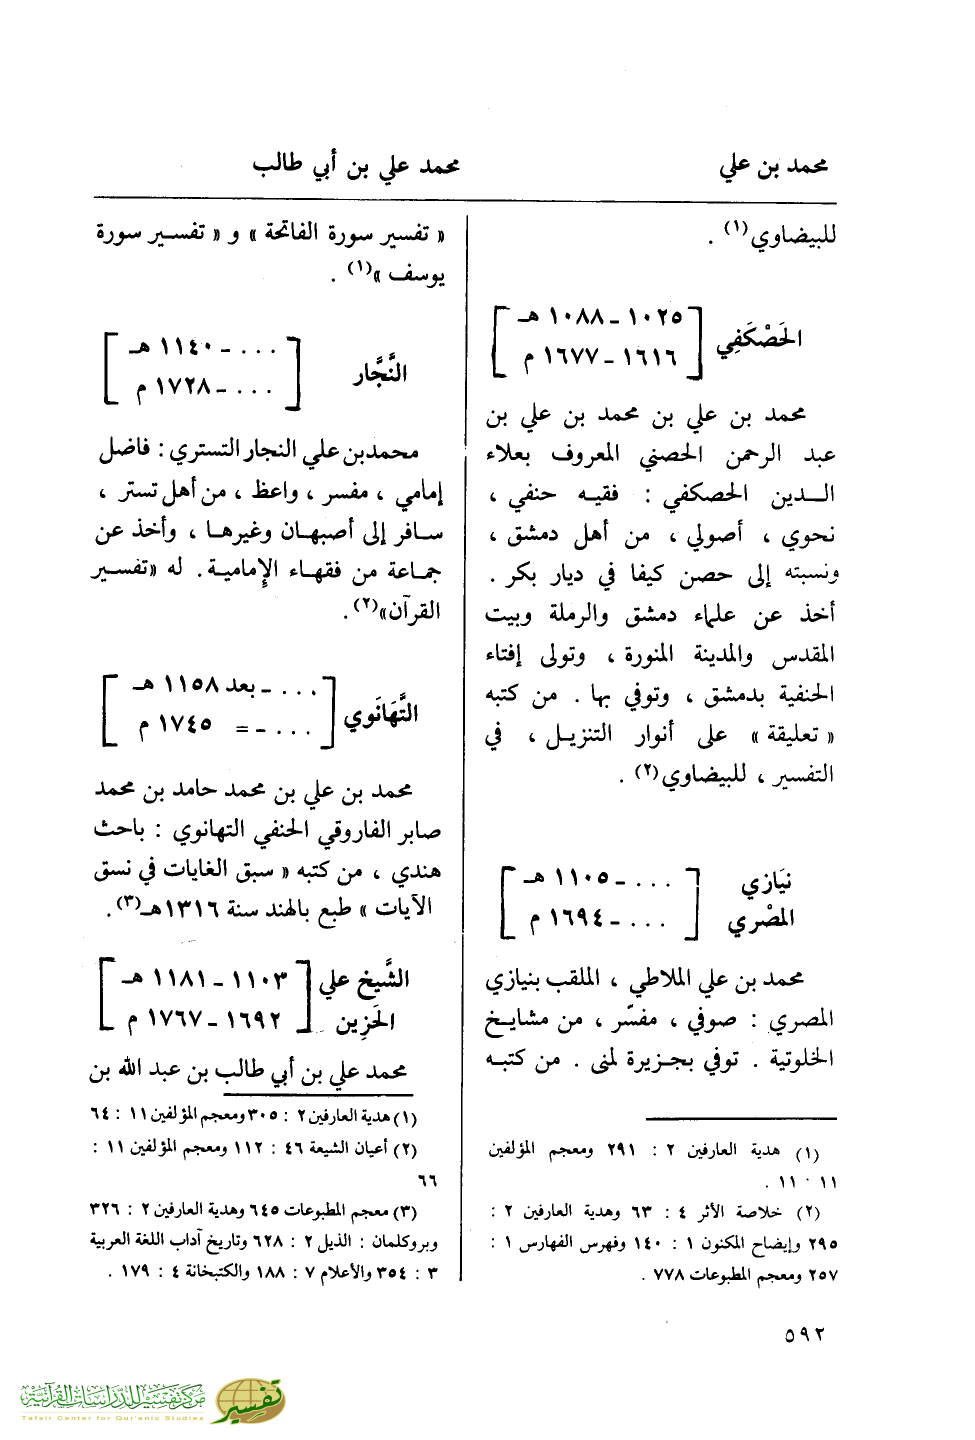 محمد بن علي
محمد علي بن أبي طالب
للبيضاوي(١) .
الحَصْكَفِي
[ ١٠٢٥ - ١٠٨٨ هـ
١٦١٦ - ١٦٧٧ م ]
محمد بن علي بن محمد بن علي بن
عبد الرحمن الحصني المعروف بعلاء
الدين الحصكفي : فقيه حنفي ،
نحوي ، أصولي ، من أهل دمشق ،
ونسبته إلى حصن كيفا في ديار بكر .
أخذ عن علماء دمشق والرملة وبيت
المقدس والمدينة المنورة ، وتولى إفتاء
الحنفية بدمشق ، وتوفي بها . من كتبه
« تعليقة » على أنوار التنزيل ، في
التفسير ، للبيضاوي(٢) .
نيَازي
المصْري
[ . . . - ١١٠٥ هـ
. . . - ١٦٩٤ م ]
محمد بن علي الملاطي ، الملقب بنيازي
المصري : صوفي ، مفسّر ، من مشايخ
الخلوتية . توفي بجزيرة لمنى . من كتبه
(١) هدية العارفين ٢ : ٢٩١ ومعجم المؤلفين
١١ : ١١ .
(٢) خلاصة الأثر ٤ : ٦٣ وهدية العارفين ٢ :
٢٩٥ وإيضاح المكنون ١ : ١٤٠ وفهرس الفهارس ١ :
٢٥٧ ومعجم المطبوعات ٧٧٨ .
« تفسير سورة الفاتحة » و « تفسير سورة
يوسف »(١) .
النَّجَّار
[ . . . - ١١٤٠ هـ
. . . - ١٧٢٨ م ]
محمد بن علي النجار التستري : فاضل
إمامي ، مفسر ، واعظ ، من أهل تستر ،
سافر إلى أصبهان وغيرها ، وأخذ عن
جماعة من فقهاء الإمامية . له «تفسير
القرآن»(٢) .
التَّهَانَوي
[ . . . - بعد ١١٥٨ هـ
. . . - = ١٧٤٥ م ]
محمد بن علي بن محمد حامد بن محمد
صابر الفاروقي الحنفي التهانوي : باحث
هندي ، من كتبه « سبق الغايات في نسق
الآيات » طبع بالهند سنة ١٣١٦هـ(٣) .
الشَّيخ علي
الحَزِين
[ ١١٠٣ - ١١٨١ هـ
١٦٩٢ - ١٧٦٧ م ]
محمد علي بن أبي طالب بن عبد الله بن
(١) هدية العارفين ٢ : ٣٠٥ ومعجم المؤلفين ١١ : ٦٤
(٢) أعيان الشيعة ٤٦ : ١١٢ ومعجم المؤلفين ١١ :
٦٦
(٣) معجم المطبوعات ٦٤٥ وهدية العارفين ٢ : ٣٢٦
وبروكلمان : الذيل ٢ : ٦٢٨ وتاريخ آداب اللغة العربية
٣ : ٣٥٤ والأعلام ٧ : ١٨٨ والكتبخانة ٤ : ١٧٩ .
٥٩٢
مركز تفسير للدراسات القرآنية
Tafsir Center for Qur'anic Studies
تفسير